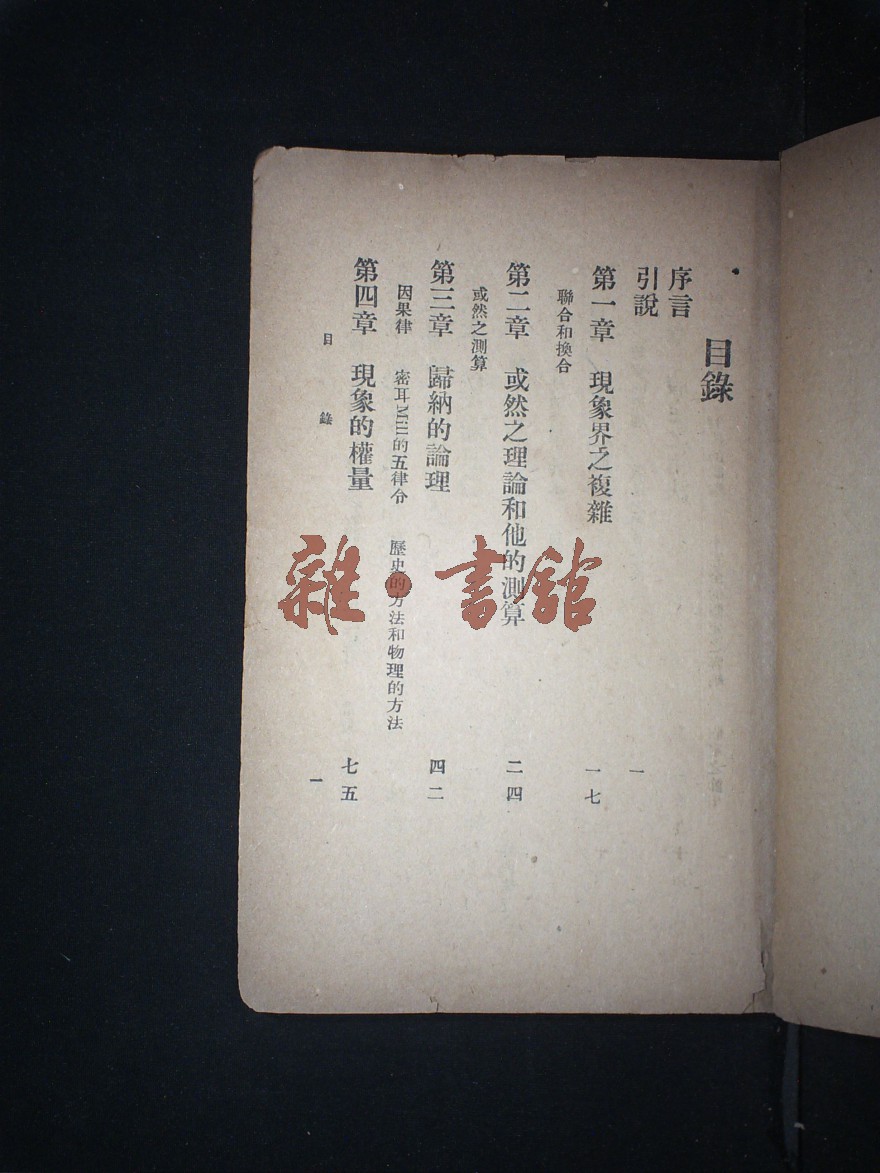 目錄
序言
引說 一
第一章 現象界之複雜 一七
聯合和換合
第二章 或然之理論和他的測算 二四
或然之測算
第三章 歸納的論理 四二
因果律 密耳Mill的五律令 歷史的方法和物理的方法
第四章 現象的權量 七五
目錄 一
雜·書館